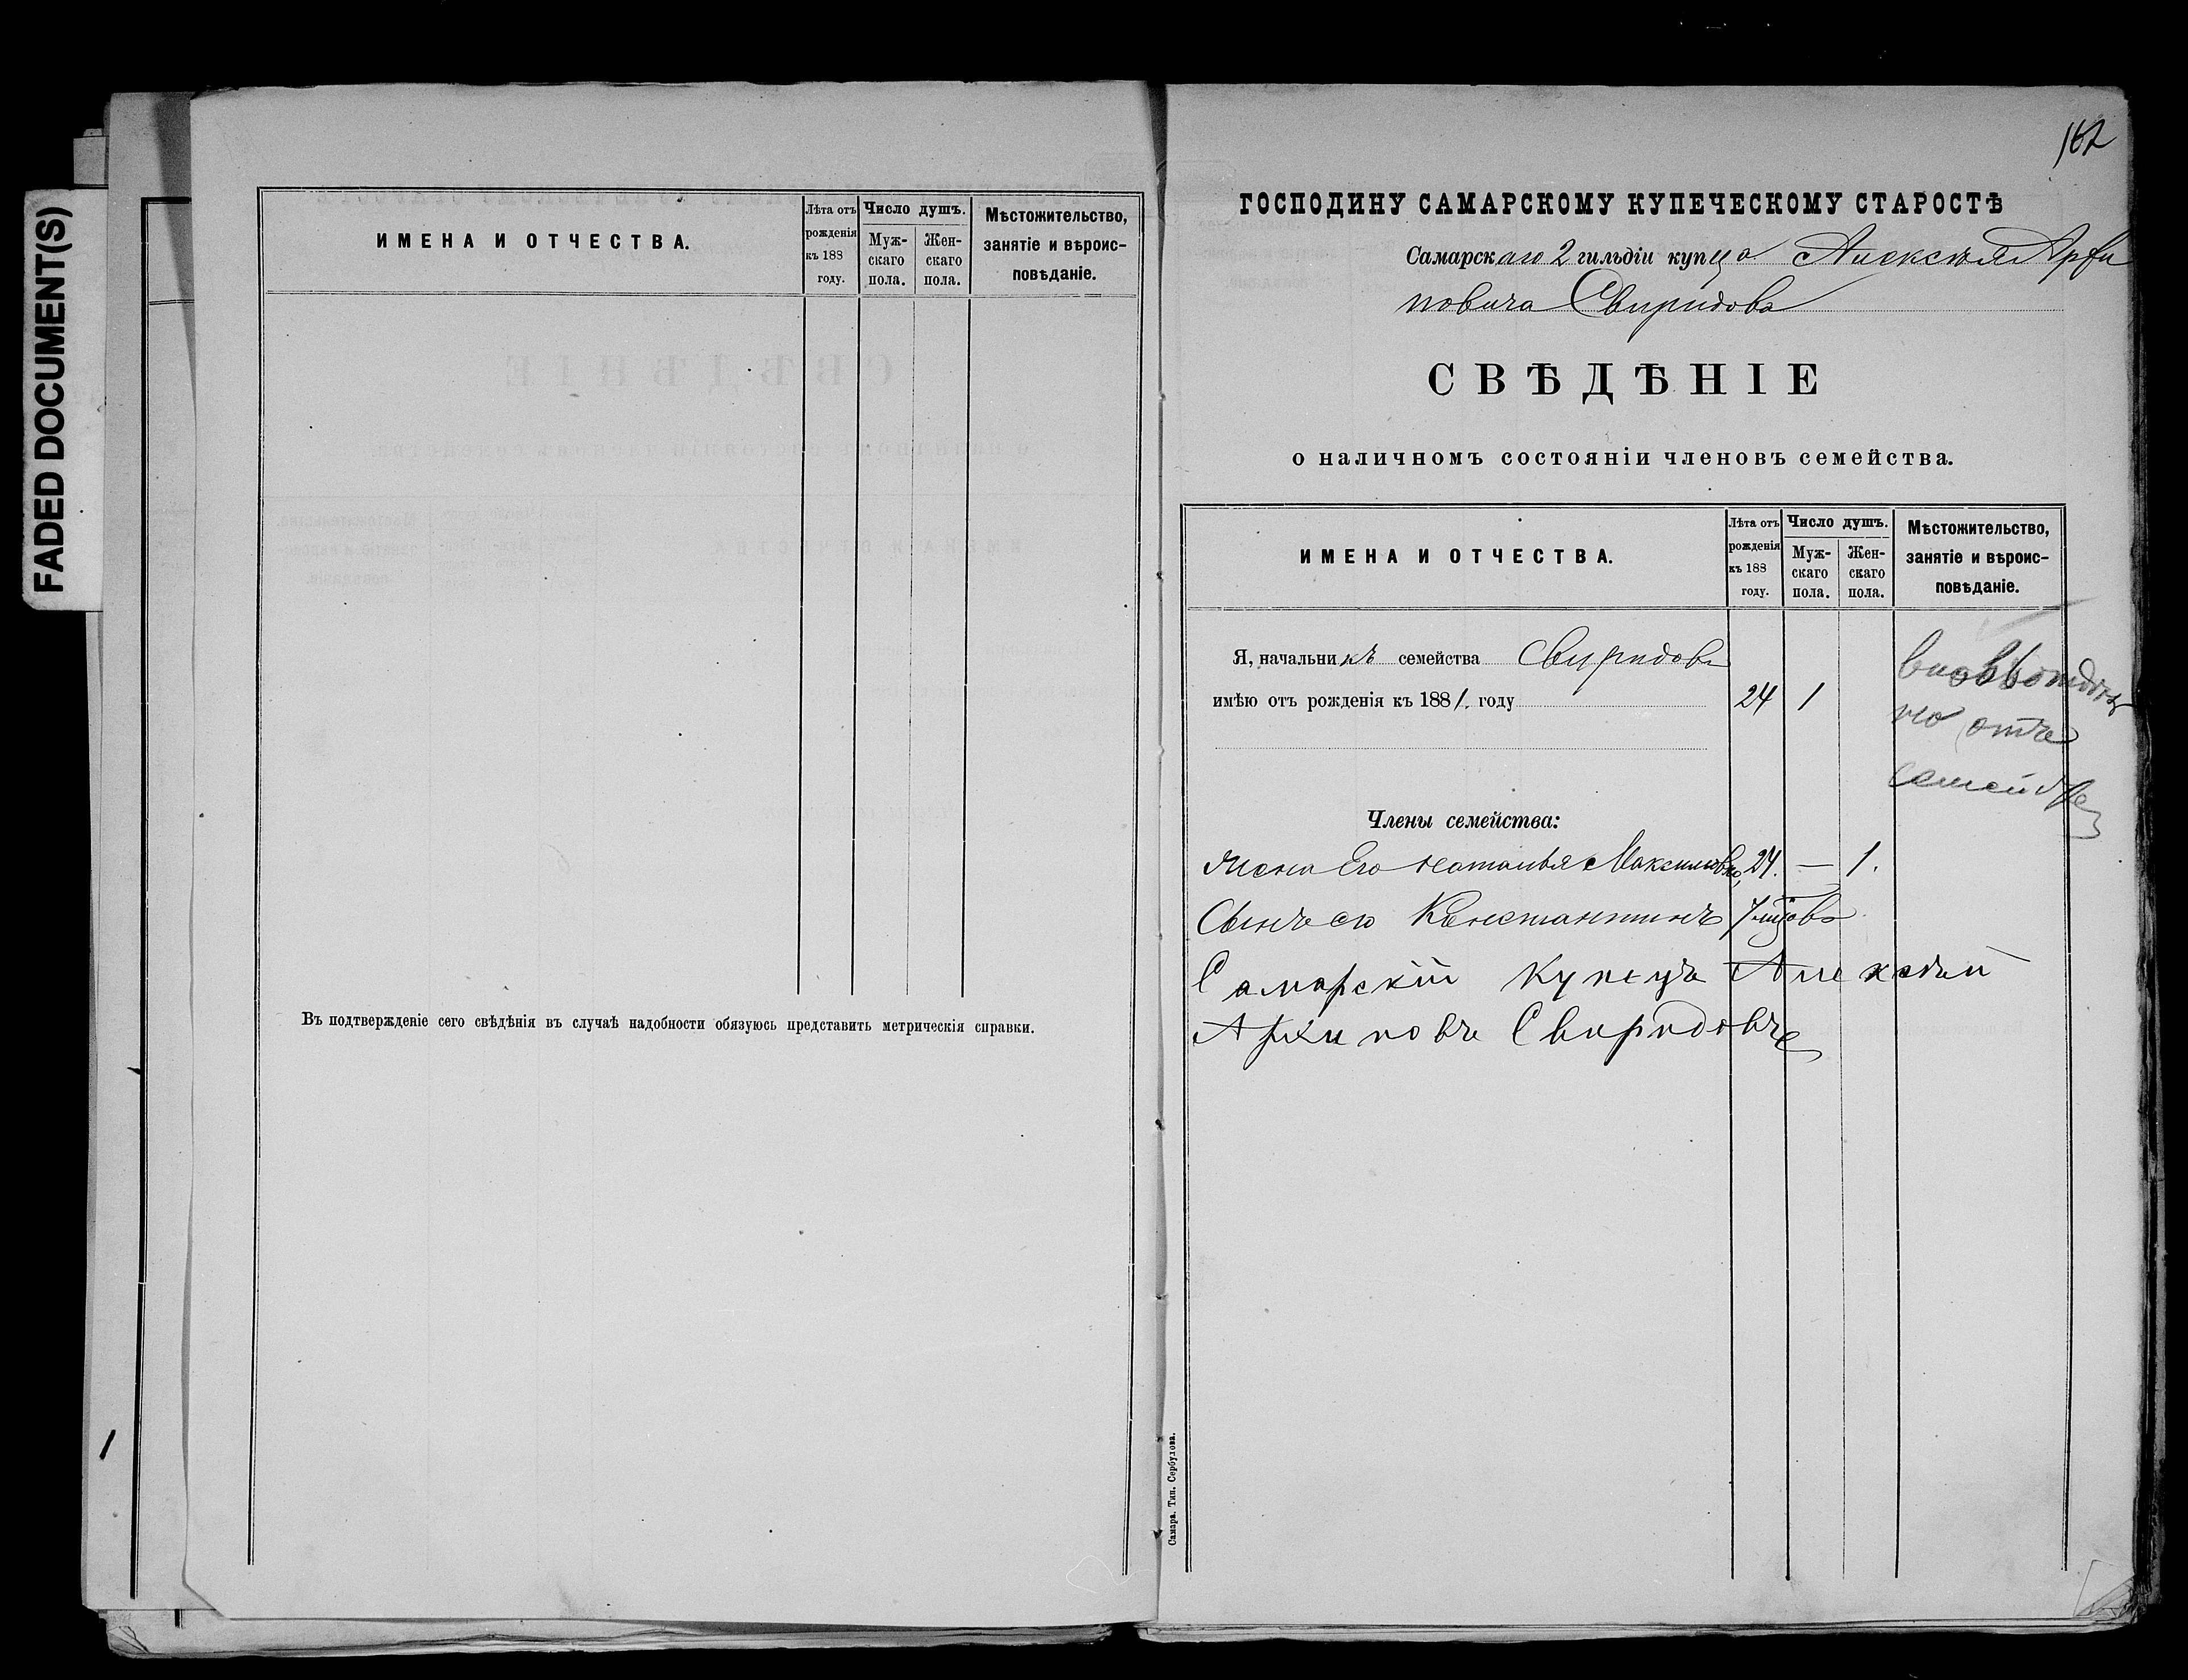 FADED DOCUMENT(S)
ИМЕНА И ОТЧЕСТВА.
Лѣта отъ рожденія къ 188 году.
Число душъ.
Муж-скаго пола.
Жен-скаго пола.
Мѣстожительство, занятіе и вѣроис-повѣданіе.
Въ подтвержденіе сего свѣдѣнія въ случаѣ надобности обязуюсь представить метрическія справки.
162
ГОСПОДИНУ САМАРСКОМУ КУПЕЧЕСКОМУ СТАРОСТѢ
Самарскаго 2 гильдіи купца Алексѣя Архи
повича Свиридова
СВѢДѢНІЕ
о наличномъ состояніи членовъ семейства.
ИМЕНА И ОТЧЕСТВА.
Лѣта отъ рожденія къ 188 году.
Число душъ.
Муж-скаго пола.
Жен-скаго пола.
Мѣстожительство, занятіе и вѣроис-повѣданіе.
Я, начальникъ семейства Свиридовъ
имѣю отъ рожденія къ 1881. году 24 1
Члены семейства:
Жена Его Наталья Максимовна 24. — 1.
Сынъ его Константинъ 7 
Самарскій Купецъ Алексѣй
Архиповъ Свиридовъ
Самара. Тип. Сербулова.